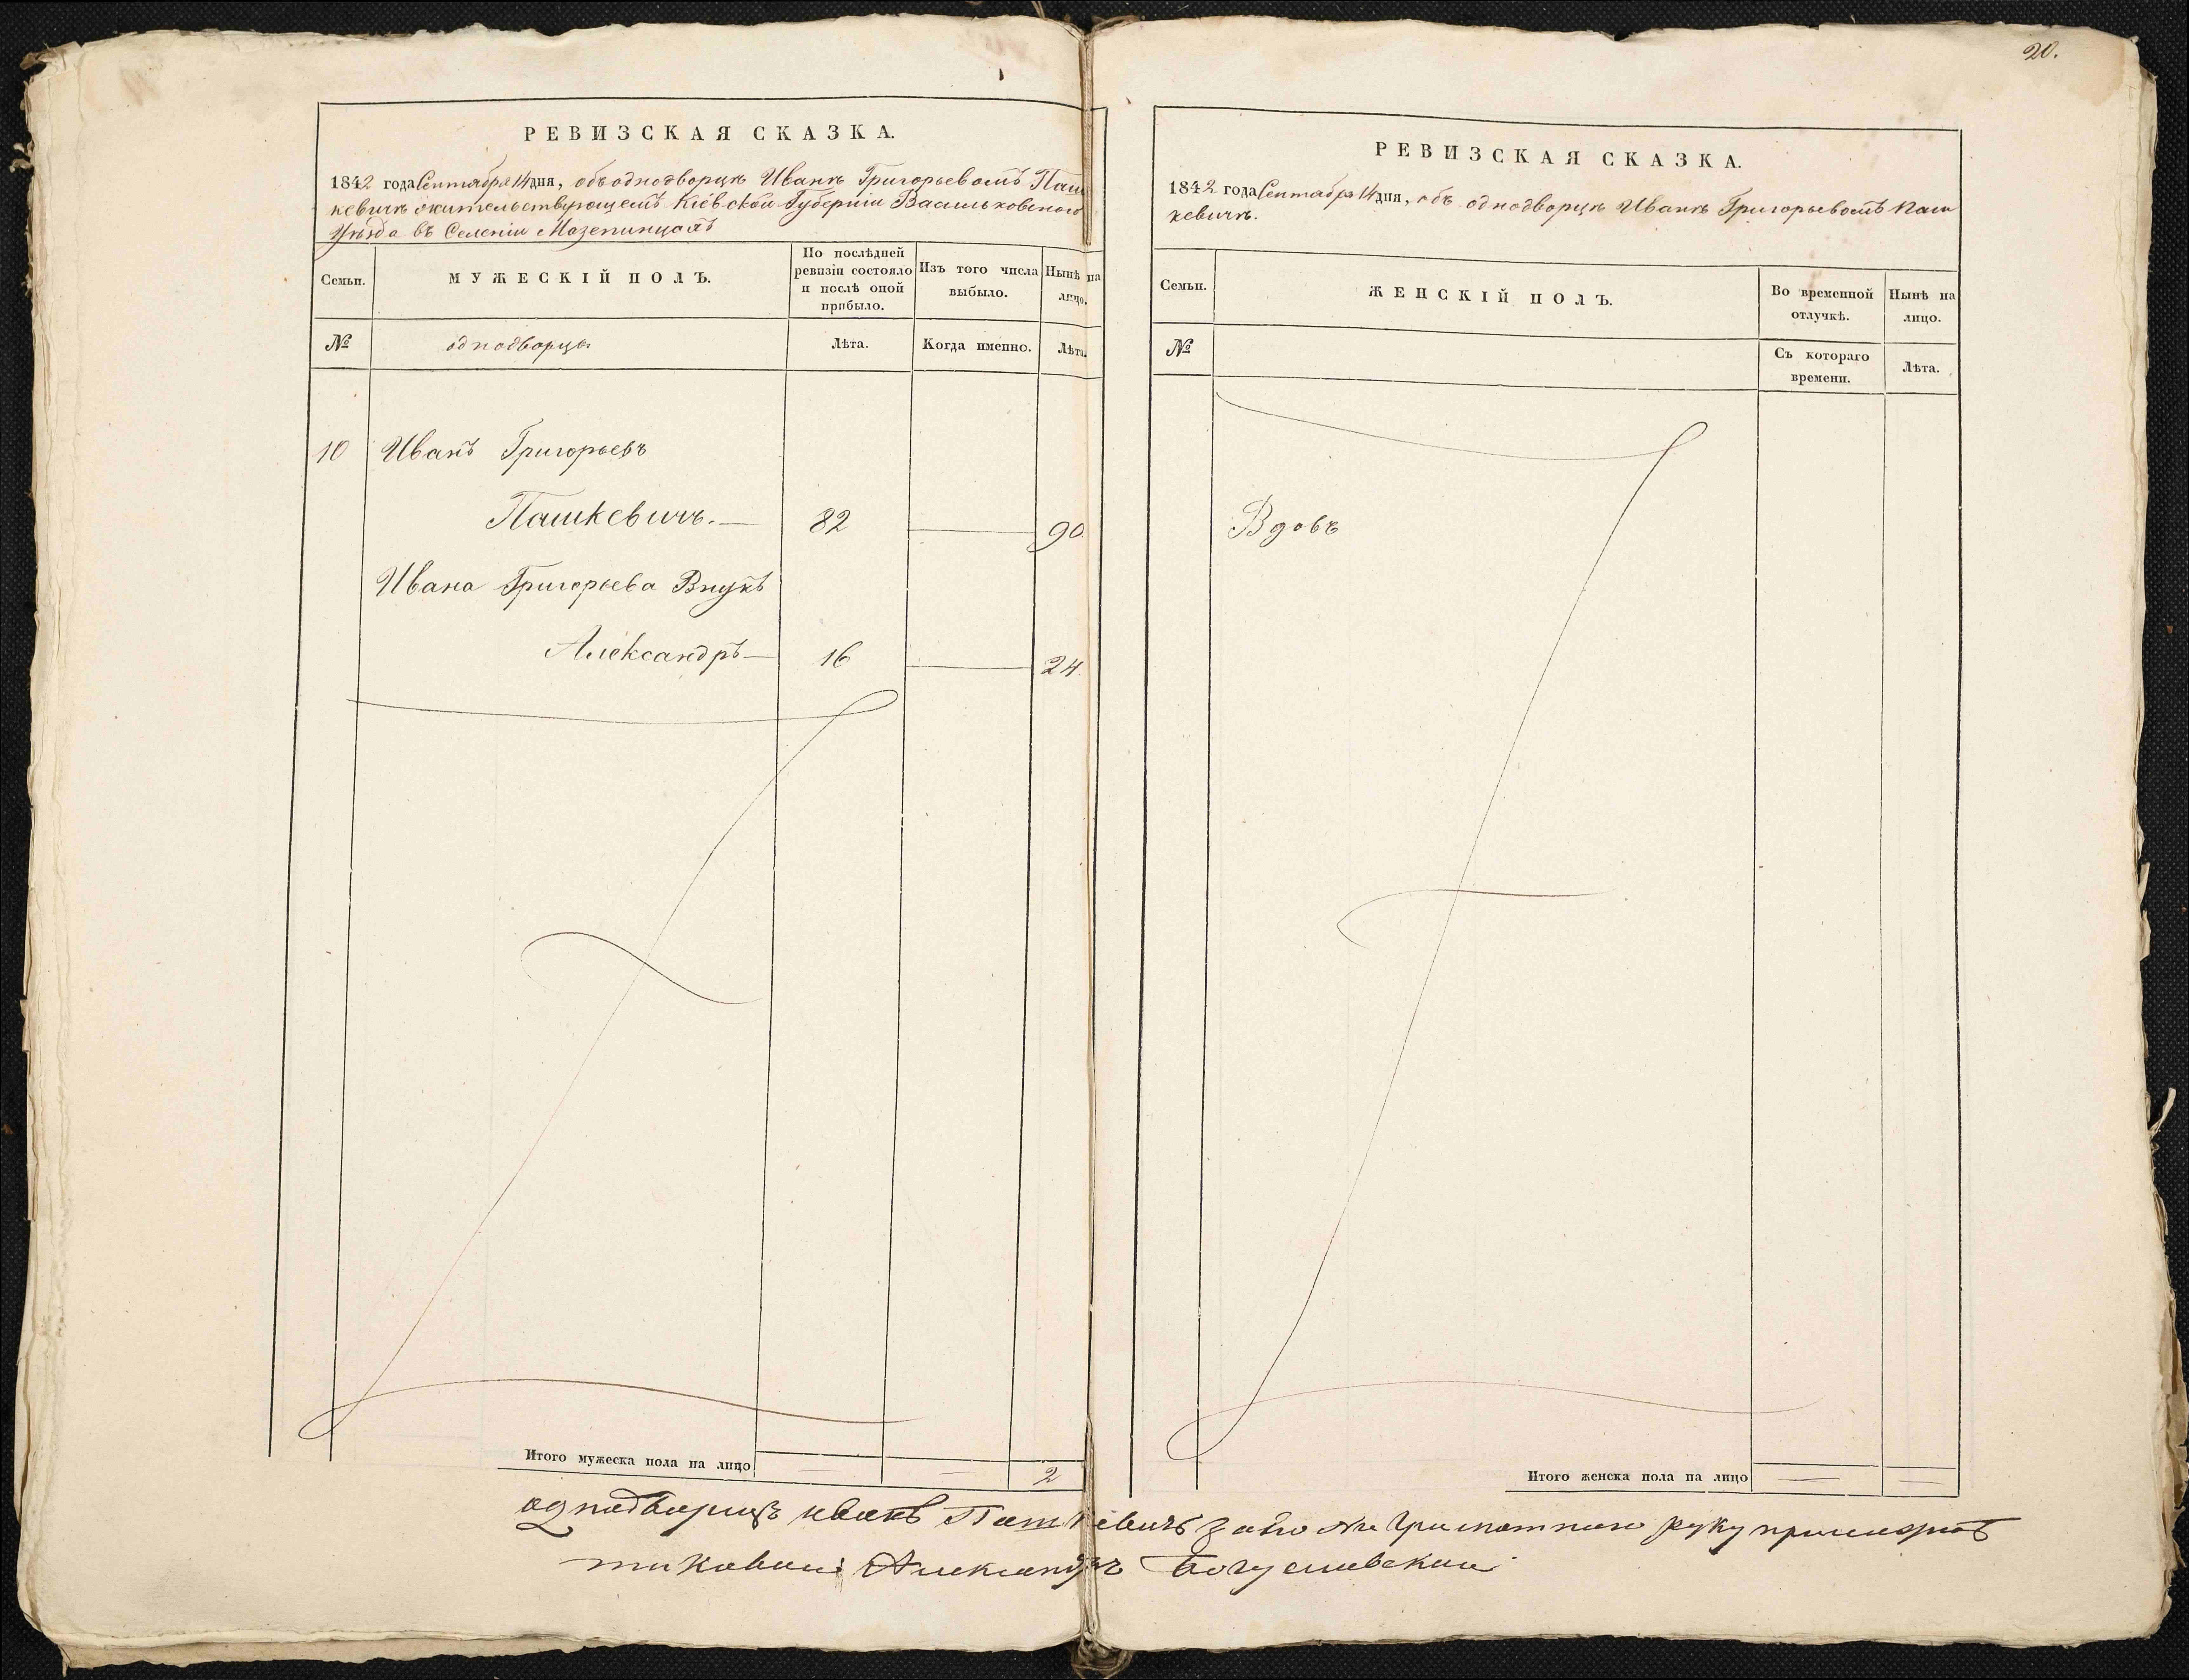 20.
РЕВИЗСКАЯ СКАЗКА.
1842 года Сентября 14 дня, объ однодворцѣ Иванѣ Григорьевомъ Паш
кевичѣ жительствующемъ Кіевской Губерніи Васильковского
Уѣзда въ Селеніи Мазепинцахъ
Семьи.
МУЖЕСКІЙ ПОЛЪ.
По послѣдней
ревизіи состояло
и послѣ оной
прибыло.
Изъ того числа
выбыло.
Нынѣ на
лицо.
№
однодворцы
Лѣта.
Когда именно.
Лѣта.
10 Иванъ Григорьевъ
Пашкевичъ.— 82 — 90.
Ивана Григорьева Внукъ
Александръ— 16 — 24.
Итого мужеска пола на лицо — — 2
РЕВИЗСКАЯ СКАЗКА.
1842 года Сентября 14 дня, объ однодворцѣ Иванѣ Григорьевомъ Паш
кевичѣ.
Семьи.
ЖЕНСКІЙ ПОЛЪ.
Во временной
отлучкѣ.
Нынѣ на
лицо.
№
Съ котораго
времени.
Лѣта.
Вдовъ
Итого женска пола на лицо — —
однодворецъ иванъ Пашкевичъ за его не Грамотного руку
Александръ Богуславский